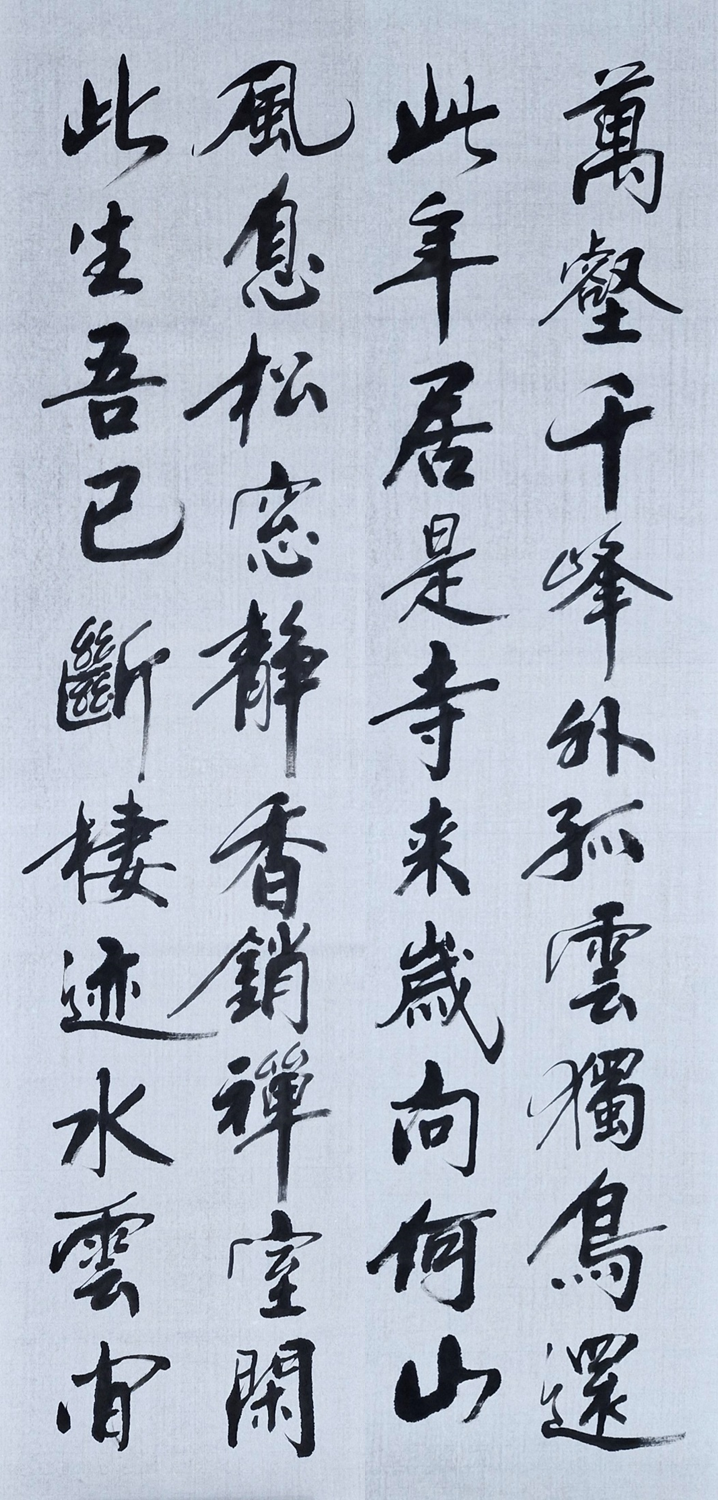 萬壑千峰外孤雲獨鳥還
此年居是寺来歲向何山
風息松窓靜香銷禪室閑
此生吾已斷棲迹水雲間